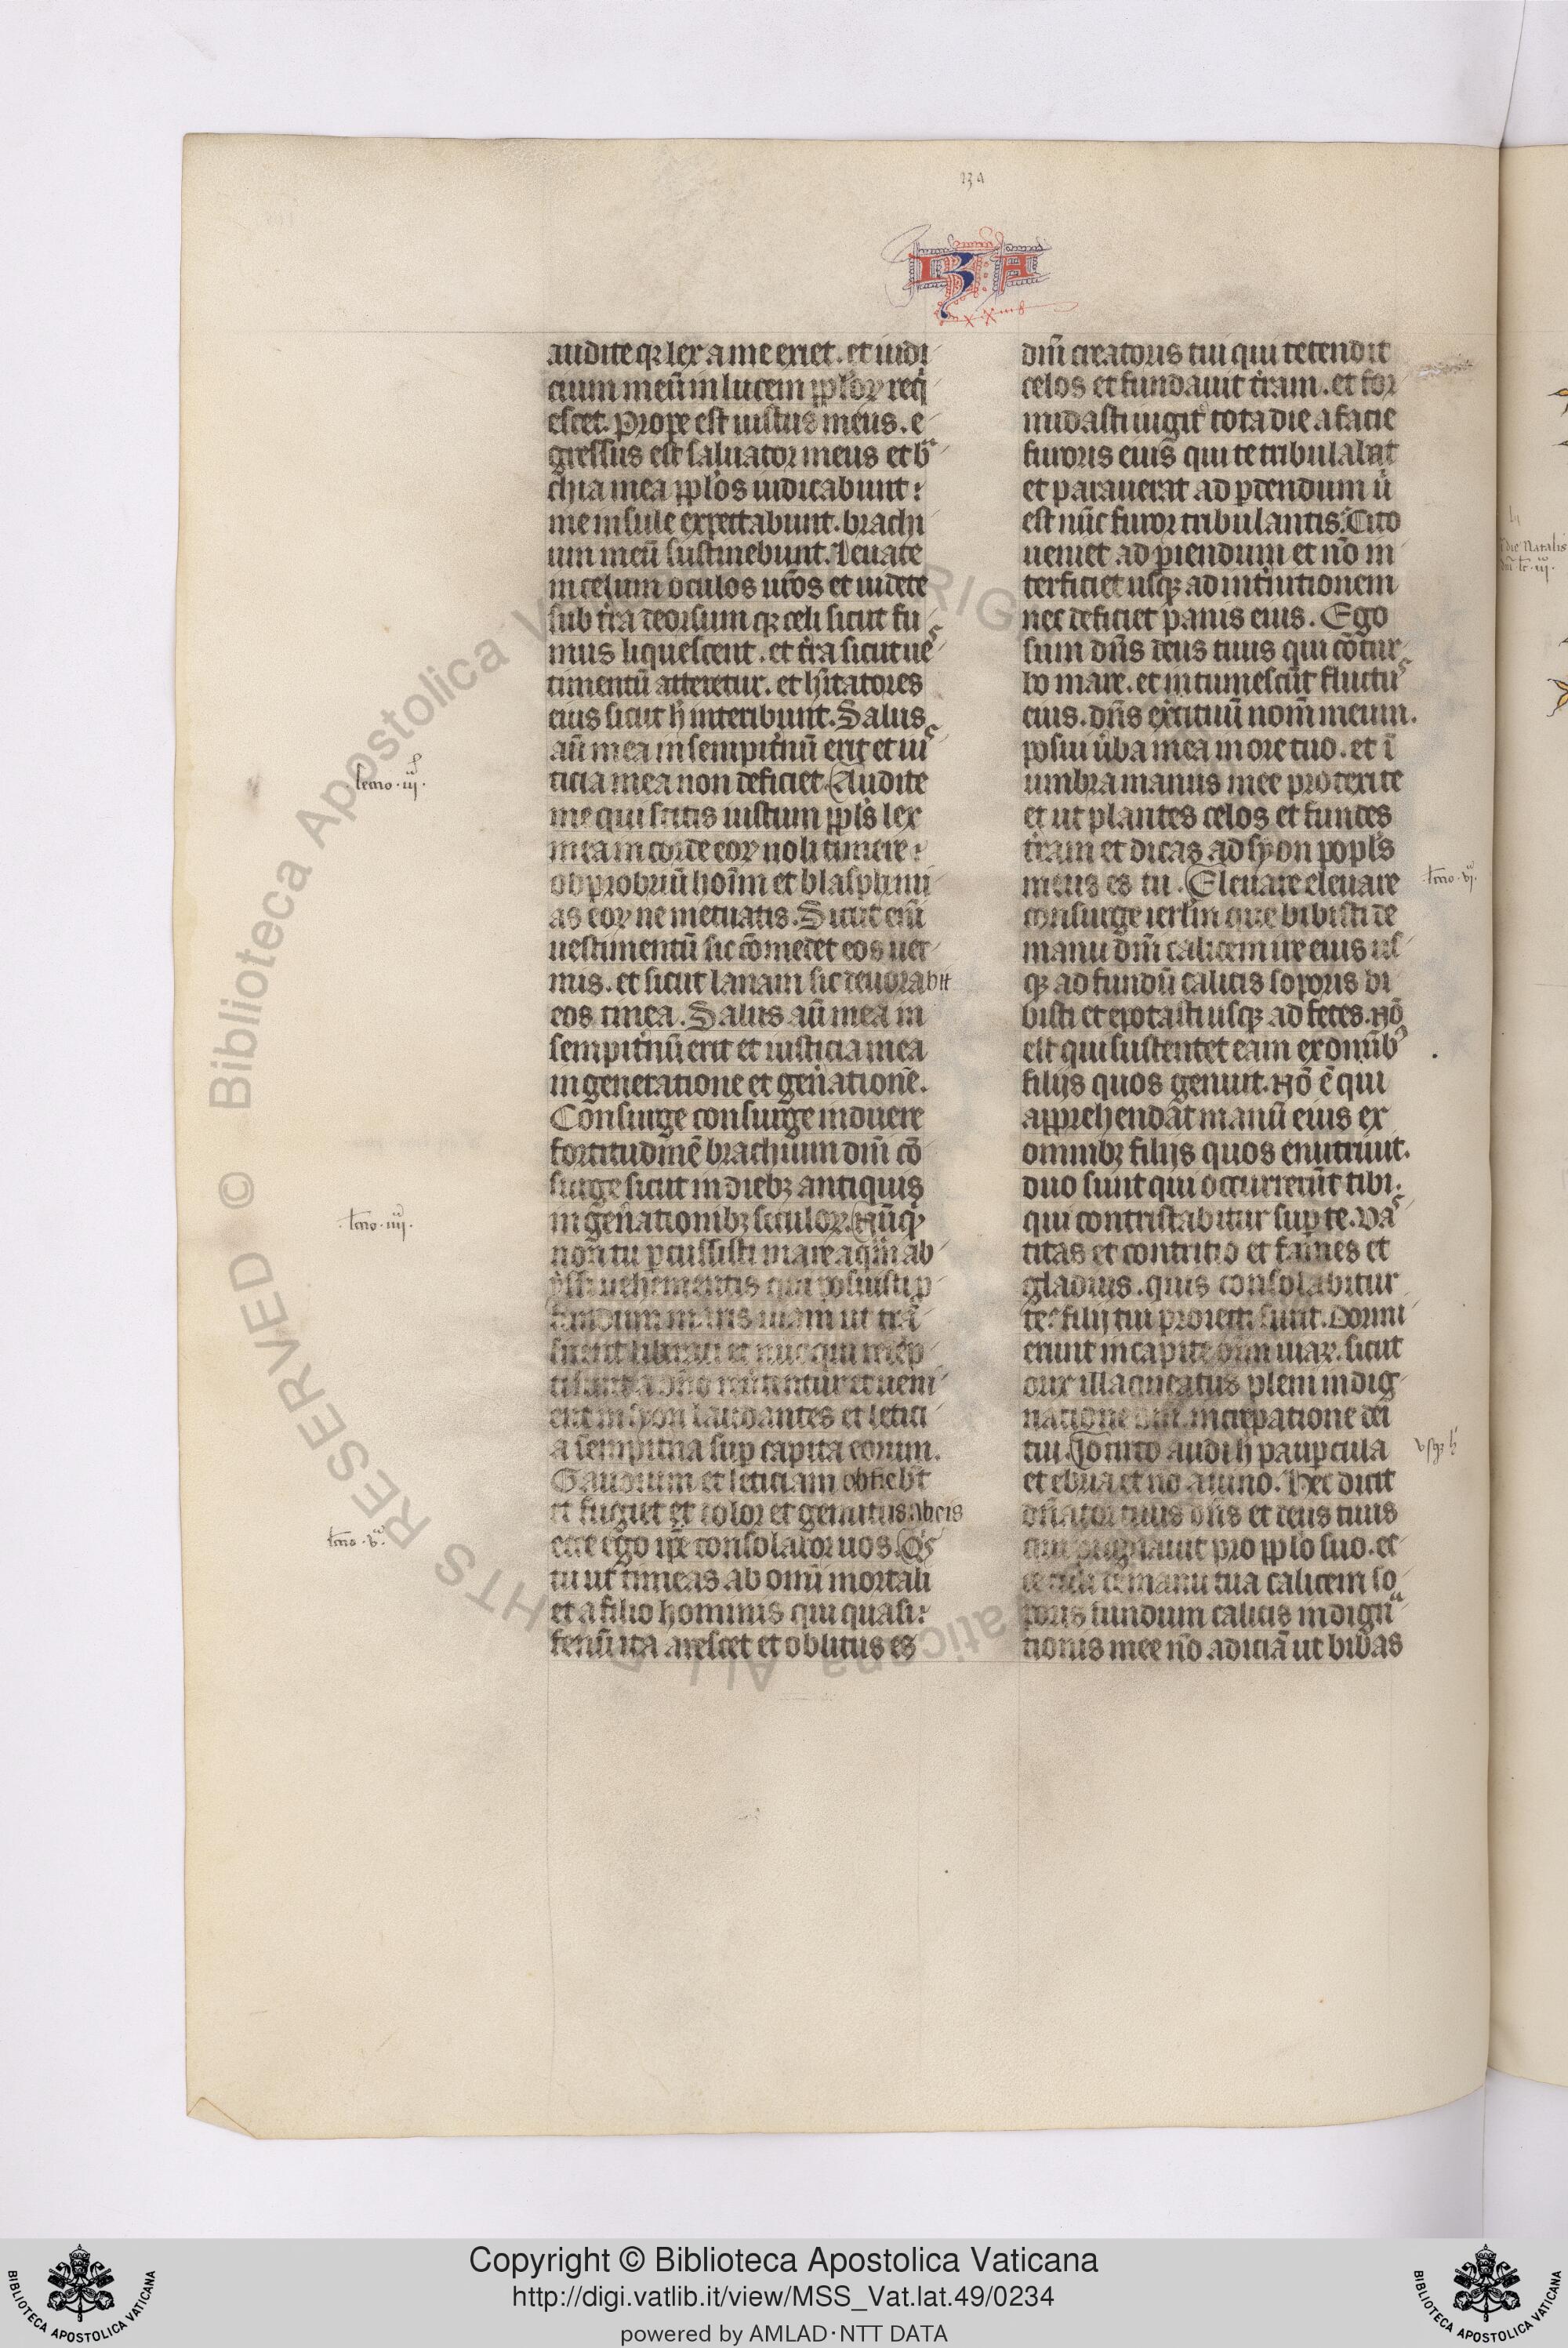 234
IZA
audite qꝫ lex a me exiet . et iudi
cium meū in lucem pploꝝ req̇
escet. Prope est iustus meus . e
gressus est saluator meus et bᵃ
chia mea pplos iudicabunt :
me insule expectabunt . brachi
um meū sustinebunt. Leuate
in celum oculos ur̄os et uidete
sub t̄ra deorsum qꝫ celi sicut fu
mus liquescent . et t̄ra sicut ues
timentū atteretur . et hītatores
eius sicut h̄ interibunt. Salus
aū mea in sempit̄nū erit et ius
ticia mea non deficiet. Audite
me qui scitis iustum ppls lex
mea in corde eoꝝ noli timere :
obprobriū hoīm et blasphmi
as eoꝝ ne metuatis. Sicut eīi
uestimentū sic cōmedet eos uer
mis . et sicut lanam sic deuorabit
eos tinea . Salus aū mea in
sempit̄nū erit et iusticia mea
in generatione et gen̄ationē.
Consurge consurge induere
fortitudinē brachium dn̄i cō
surge sicut in diebꝫ antiquis
in gen̄ationibꝫ seculoꝝ. Nūqꝫ
non tu ꝑcussisti mare aqᵃm ab
yssi uehementis qui posuisti ꝓ
fundum maris uiam ut trā
sirent liberati et nūc qui redēp
ti sunt a dn̄o reūtentur et ueni
ent in syon laudantes et letici
a sempit̄na suꝑ capita eorum.
Gaudium et leticiam obtiebt̄
et fugiet et dolor et gemitus ab eis
ecce ego ip̄e consolator uos. Qⁱs
tu ut timeas ab omī mortali
et a filio hominis qui quasi :
fenū ita arescet et oblitus es
dn̄i creatoris tui qui tetendit
celos et fundauit t̄ram . et for
midasti iugit̄ tota die a facie
furoris eius qui te tribulabat
et parauerat ad ꝑdendum u̇
est nūc furor tribulantis. Cito
ueniet ad ꝑiendum et nō in
terficiet usqꝫ ad int̄iutionem
nec deficiet panis eius . Ego
sum dn̄s deus tuus qui cōtur
bo mare . et intumescūt fluctus
eius . dn̄s ex̄cituū nom̄ meum.
posui u̇ba mea in ore tuo . et ī
umbra manus mee protexi te
et ut plantes celos et fundes
t̄ram et dicas ad syon popl̄s
meus es tu . Eleuare eleuare
consurge ierl̄m que bibisti de
manu dn̄i calicem ire eius us
qꝫ ad fundū calicis soporis bi
bisti et epotasti usqꝫ ad feces. Nō
est qui sustentet eam ex omībꝰ
filijs quos genuit. Nō ē qui
apprehendāt manū eius ex
omnibꝫ filijs quos enutriuit.
duo sunt qui occurrerūt tibi.
qui contristabitur suꝑ te. Vas
titas et contritio et fames et
gladius . quis consolabitur
te : filij tui proiecti sunt. Dormi
erunt in capite oīm uiaꝝ . sicut
orix illaqueatus pleni indig
natione dn̄i . increpatione dei
tui. Idcirco audi h̄ pauꝑcula
et ebria et nō a uino. Hec dicit
dn̄ator tuus dn̄s et deus tuus
qui pugnauit pro pplo suo . ec
ce tuli de manu tua calicem so
poris fundum calicis indignᵃ
tionis mee nō adiciā ut bibas
lectio . iij.
lectio . iiij.
lectio . v.
lectio . vj.
Copyright © Biblioteca Apostolica Vaticana
http://digi.vatlib.it/view/MSS_Vat.lat.49/0234
powered by AMLAD·NTT DATA
BIBLIOTECA APOSTOLICA VATICANA
BIBLIOTECA APOSTOLICA VATICANA